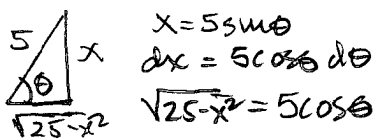 5
x
θ
√25-x²
x = 5sinθ
dx = 5cosθ dθ
√25-x² = 5cosθ